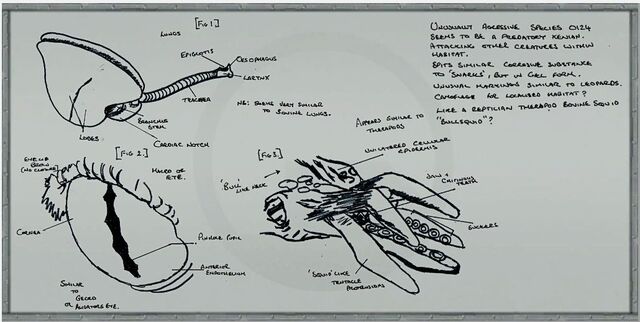 [Fig 1.]
Lungs
Epiglotis
Oesophagus
Larynx
Trachea
Bronchus
Stem
Cardiac Notch
Lobes
NB: Shape very similar
to bovine lungs.
Unusually Agressive Species 0124
seems to be a predatory Xenian.
Attacking other creatures within
habitat.
Spits similar corrosive substance
to 'Snarks', but in gel form.
Unusual markings similar to leopards.
Camoflage for localised habitat?
Like a reptilian therapod bovine squid
"Bullsquid"?
[Fig 2.]
Brow
(No closure)
Macro of
Eye.
Cornea
Pinhole Pupil
Anterior
Endothelium
Similar
to
Gecko
or
Aligators eye.
[Fig 3.]
Appears similar to
therapods
Unilayered cellular
epidermis
'Bull'
like neck
Jaw &
Chitinous
teeth
Suckers
'Squid' like
tentacle
protrusions